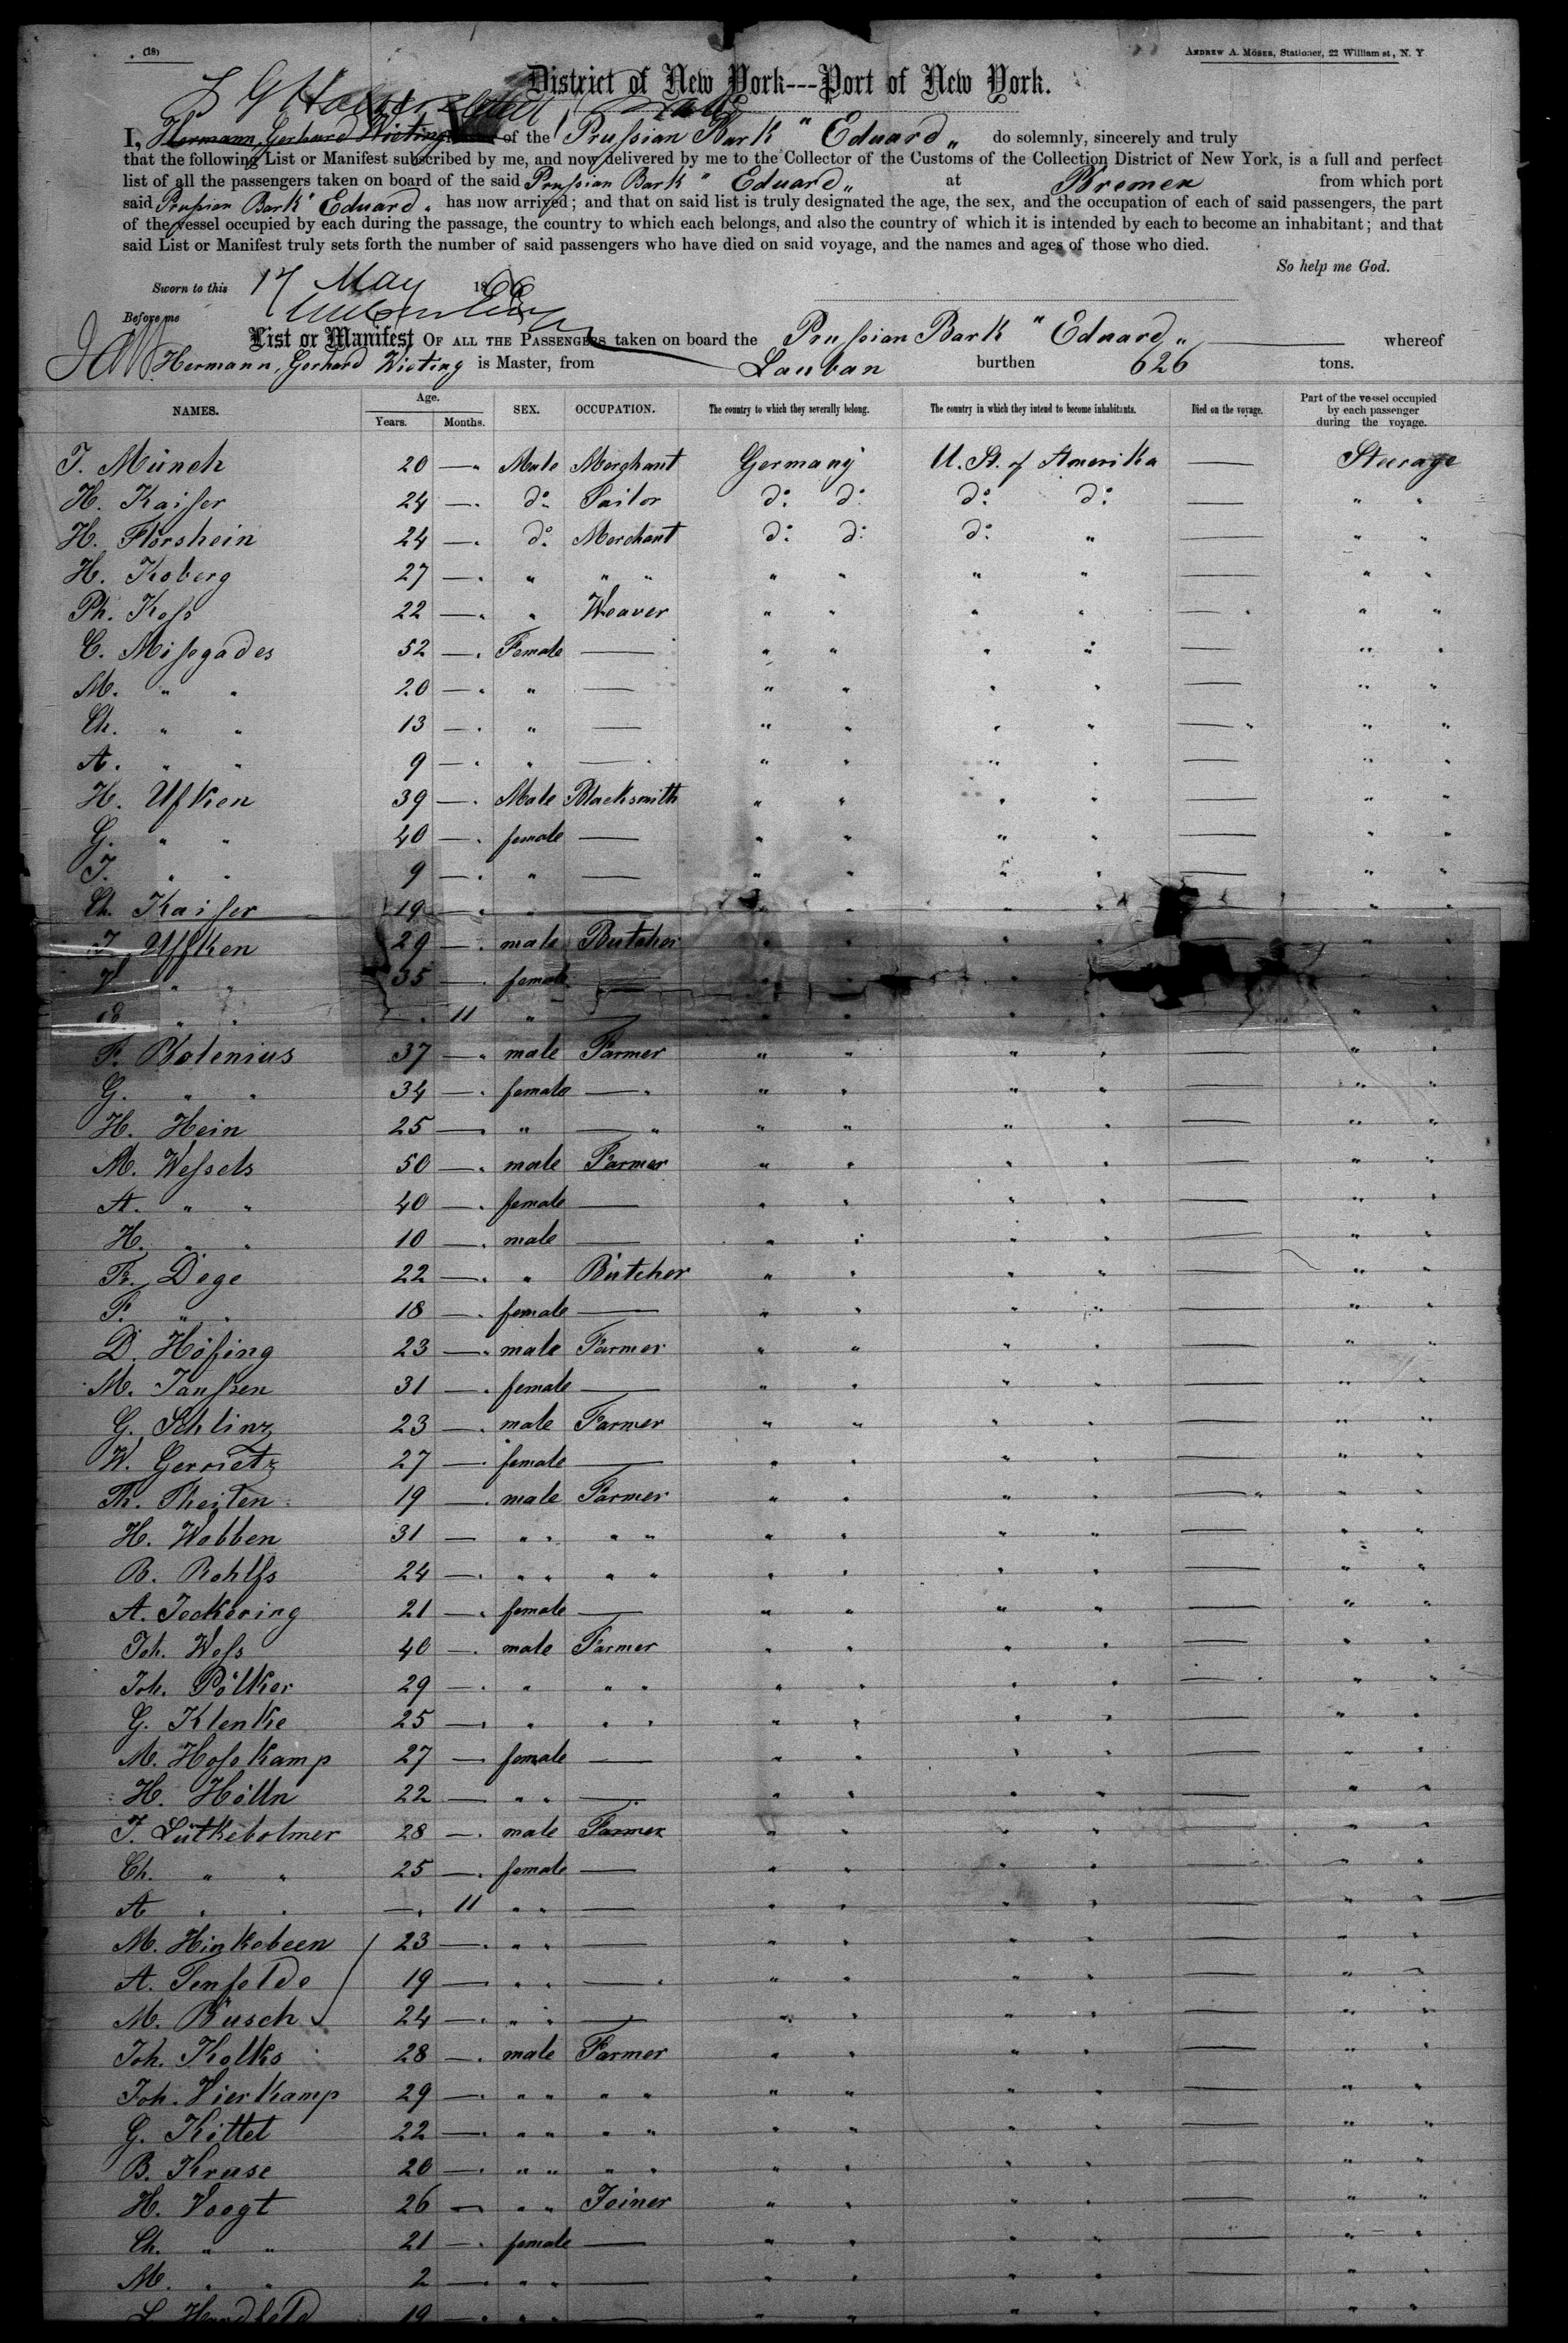 (18)
ANDREW A. MOSER, Stationer, 22 William st, N. Y
District of New York---Port of New York.
I, Hermann, Gerhard Wieting of the Prussian Bark "Eduard„ do solemnly, sincerely and truly
that the following List or Manifest subscribed by me, and now delivered by me to the Collector of the Customs of the Collection District of New York, is a full and perfect
list of all the passengers taken on board of the said Prussian Bark "Eduard„ at Bremen from which port
said Prussian Bark "Eduard„ has now arrived; and that on said list is truly designated the age, the sex, and the occupation of each of said passengers, the part
of the vessel occupied by each during the passage, the country to which each belongs, and also the country of which it is intended by each to become an inhabitant; and that
said List or Manifest truly sets forth the number of said passengers who have died on said voyage, and the names and ages of those who died.
So help me God.
Sworn to this 17 May 1866
Before me
List or Manifest OF ALL THE PASSENGERS taken on board the Prussian Bark "Eduard„ whereof
Hermann, Gerhard Wieting is Master, from Lauban burthen 626 tons.
NAMES. Age. Years. Months. SEX. OCCUPATION. The country to which they severally belong. The country in which they intend to become inhabitants. Died on the voyage. Part of the vessel occupied by each passenger during the voyage.
J. Münch 20 — Male Merchant Germany U. St. of Amerika — Steerage
H. Kaiser 24 — do. Tailor do. do. do. do. — " "
H. Florshein 24 — do. Merchant do. do. do. " — " "
H. Koberg 27 — " " " " " " " — " "
Ph. Koss 22 — " Weaver " " " " — " "
C. Missegades 52 — Female — " " " " — " "
M. " " 20 — " — " " " " — " "
Ch. " " 13 — " — " " " " — " "
A. " " 9 — " — " " " " — " "
H. Ufken 39 — Male Blacksmith " " " " — " "
G. " " 40 — female — " " " " — " "
J. " " 9 — " — " " " " — " "
Ch. Kaiser 19 — " — " " " " " "
J. Uffken 29 — male Butcher " " " " " "
" " 35 — female — " " " " " "
" " — 11 " — " " " " " "
F. Bolenius 37 — male Farmer " " " " — " "
G. " " 34 — female — " " " " — " "
H. Hein 25 — " — " " " " — " "
M. Wessels 50 — male Farmer " " " " — " "
A. " " 40 — female — " " " " — " "
H. " " 10 — male — " " " " — " "
Fr. Dege 22 — " Butcher " " " " — " "
F. " " 18 — female — " " " " — " "
D. Höfing 23 — male Farmer " " " " — " "
M. Janssen 31 — female — " " " " — " "
G. Schlinz 23 — male Farmer " " " " — " "
W. Gerrietz 27 — female — " " " " — " "
Th. Theilen 19 — male Farmer " " " " — " "
H. Wobben 31 — " " " " " " " " — " "
B. Rohlfs 24 — " " " " " " " " — " "
A. Jeckering 21 — female — " " " " — " "
Joh. Wess 40 — male Farmer " " " " — " "
Joh. Pölker 29 — " " " " " " " — " "
G. Klenke 25 — " " " " " " " — " "
M. Hosskamp 27 — female — " " " " — " "
H. Hölln 22 — " " — " " " " — " "
J. Lütkebolmer 28 — male Farmer " " " " — " "
Ch. " " 25 — female — " " " " — " "
A " " — 11 " " — " " " " — " "
M. Hinkebeen 23 — " " — " " " " — " "
A. Tenfelde 19 — " " — " " " " — " "
M. Busch 24 — " " — " " " " — " "
Joh. Kolks 28 — male Farmer " " " " — " "
Joh. Vierkamp 29 — " " " " " " " " — " "
G. Kittel 22 — " " " " " " " " — " "
B. Kruse 20 — " " " " " " " " — " "
H. Voogt 26 — " " Joiner " " " " — " "
Ch. " " 21 — female — " " " " — " "
M. " " 2 — " " — " " " " — " "
L. 19 — " " — " " " " — " "